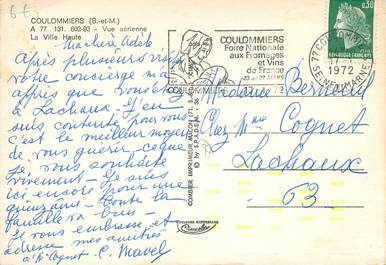 COULOMMIERS (S.-et-M.)
A 77 131. 602-93 - Vue aérienne
La Ville Haute
Ma chère Adèle
Après plusieurs visites
votre concierge m'a
appris que vous étiez
à Lachaux. J'en
suis contente pour vous
c'est le meilleur moyen
de vous guérir. ce que
je vous souhaite
vivement. Je suis
ici encore pour une
quinzaine. Toute la
famille va bien.
Je vous embrasse et
adresse mes amitiés
à Me Cognet C. Mavel
COULOMMIERS
Foire Nationale
aux Fromages
et Vins
de France
COULOMMIERS
77 COULOMMIERS
1972
SEINE ET MARNE
0,30
REPUBLIQUE FRANÇAISE
COMBIER IMPRIMEUR MACON
© by S.P.A.D.E.M.
Madame
Chez Mme Cognet
Lachaux
63